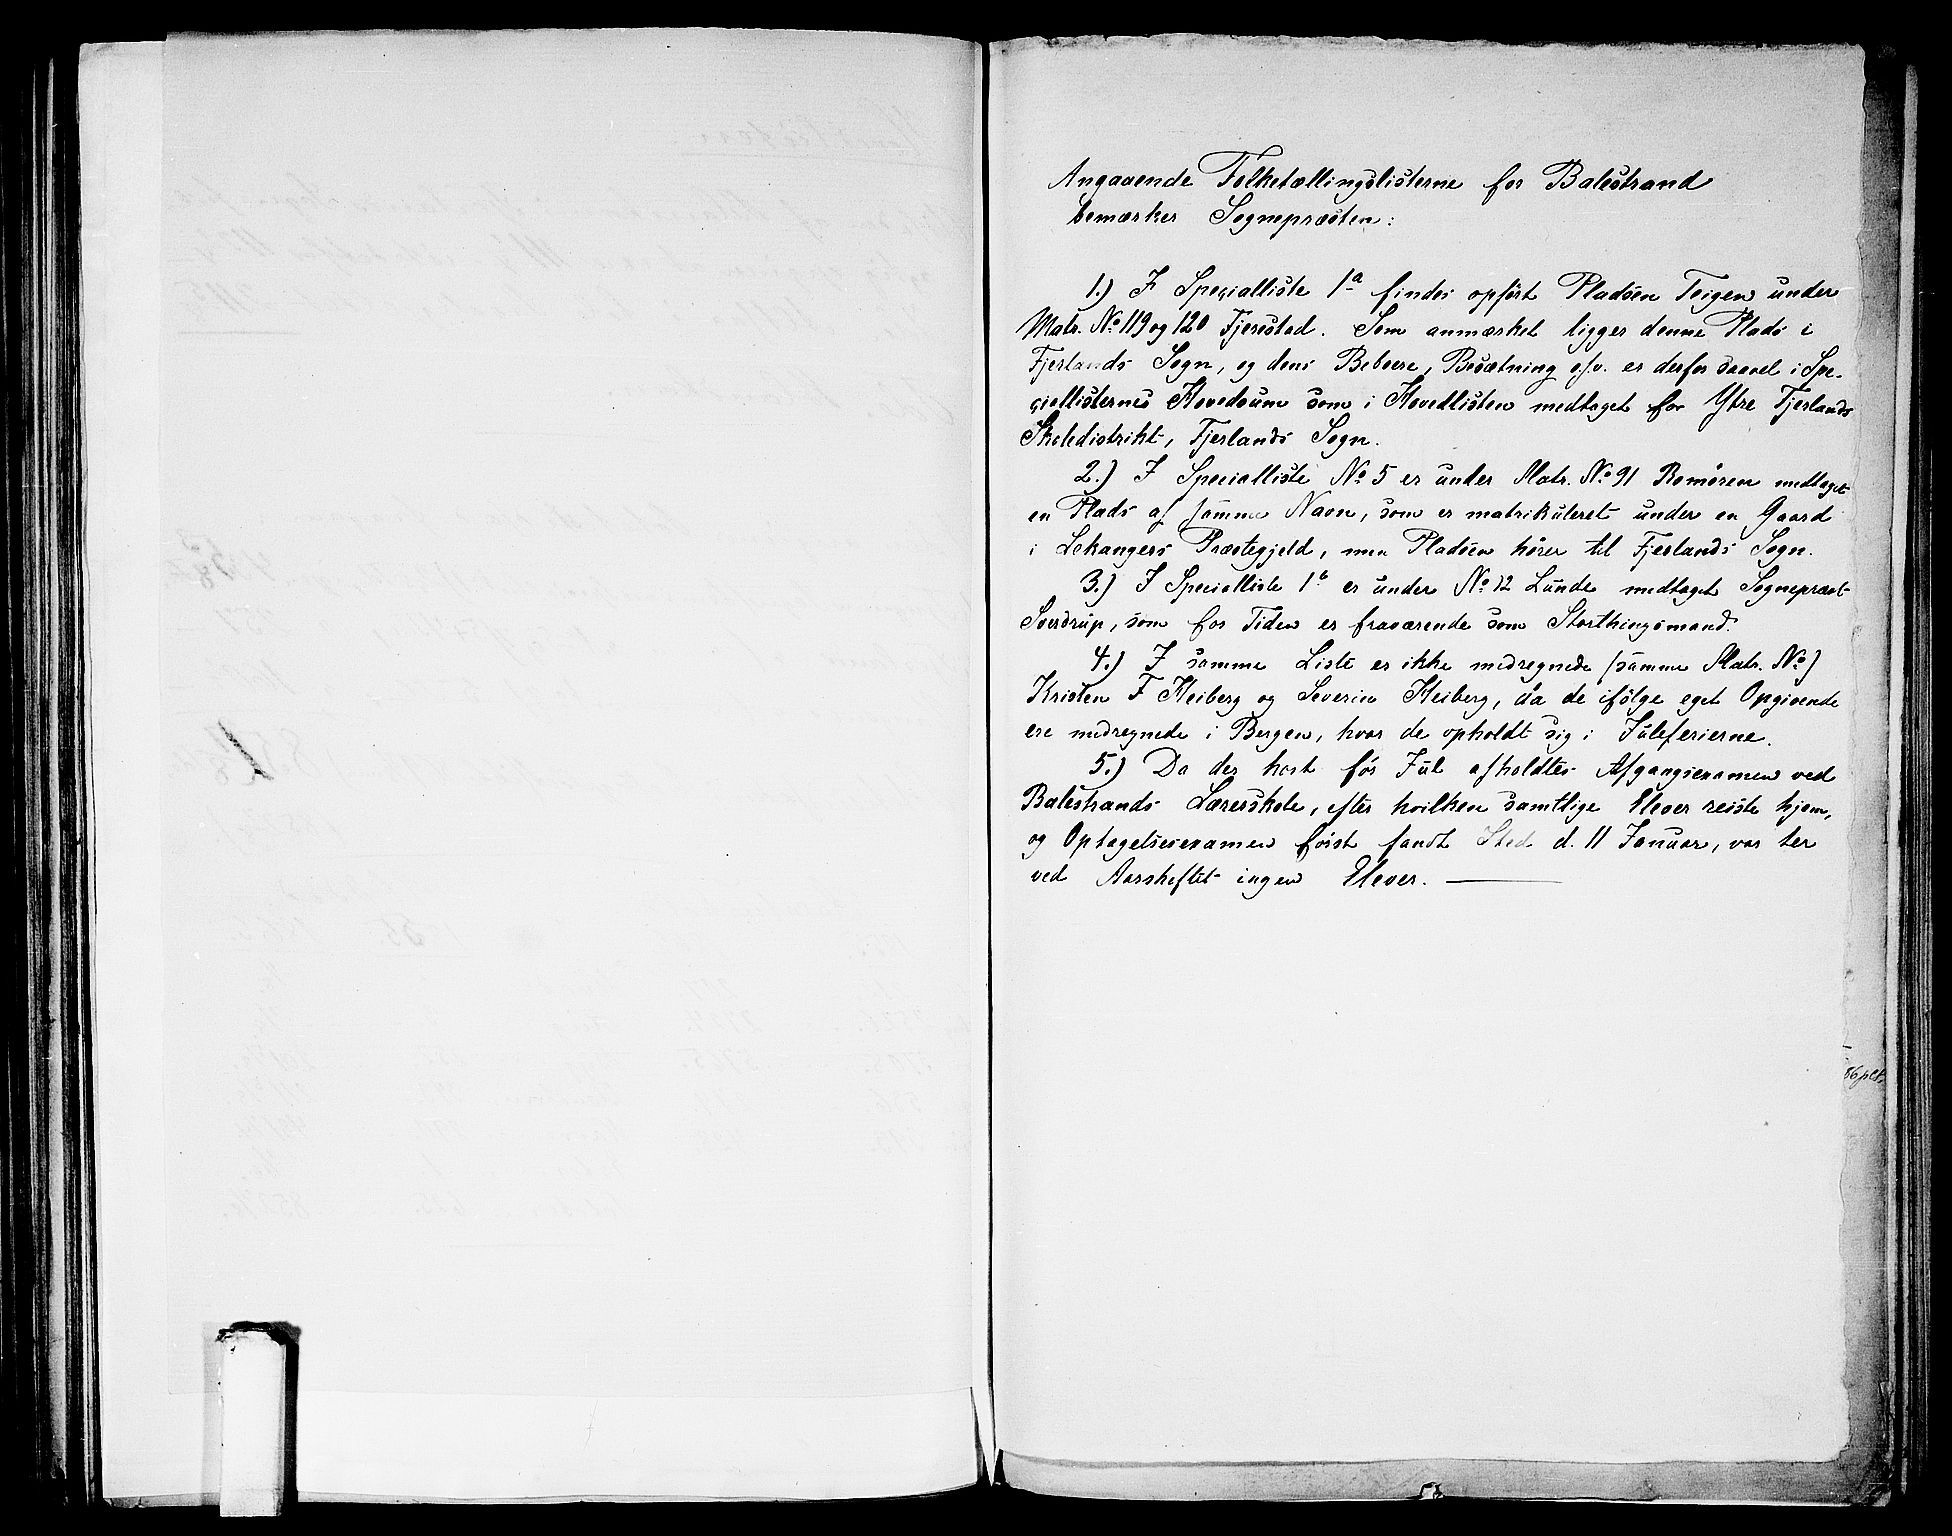 Angaaende Folketællingslisterne for Balestrand
bemærker Sognepræsten:
1.) I Specialliste 1a findes opført Pladsen Teigen under
Matr. No 119 og 120 Fjærestad. Som anmærket ligger denne Plads i
Fjerlands Sogn, og dens Beboere, Besætning o.s.v. er derfor saavel i Spe-
ciallisternes Hovedsum som i Hovedlisten medtaget for Ytre Fjerlands
Skoledistrikt, Fjerlands Sogn.
2.) I Specialliste No 5 er under Matr. No 91 Romøren medtaget
en Plads af samme Navn, som er matrikuleret under en Gaard
i Lekangers Præstegjeld, men Pladsen hører til Fjerlands Sogn.
3.) I Specialliste 1b er under No 12 Lunde medtaget Sognepræst
Sverdrup, som for Tiden er fraværende som Storthingsmand.
4.) I samme Liste er ikke medregnede (samme Matr. No)
Kristen F Heiberg og Severin Heiberg, da de ifølge eget Opgivende
ere medregnede i Bergen, hvor de opholdt sig i Juleferierne.
5.) Da der kort før Jul afholdtes Afgangsexamen ved
Balestrands Lærerskole, efter hvilken samtlige Elever reiste hjem,
og Optagelsesexamen først fandt Sted d. 11 Januar, var der
ved Aarsskiftet ingen Elever.